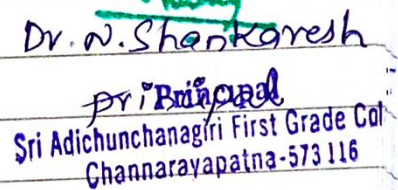 Dr. N. Shankaresh
Principal
Principal
Sri Adichunchanagiri First Grade Col
Channarayapatna-573 116